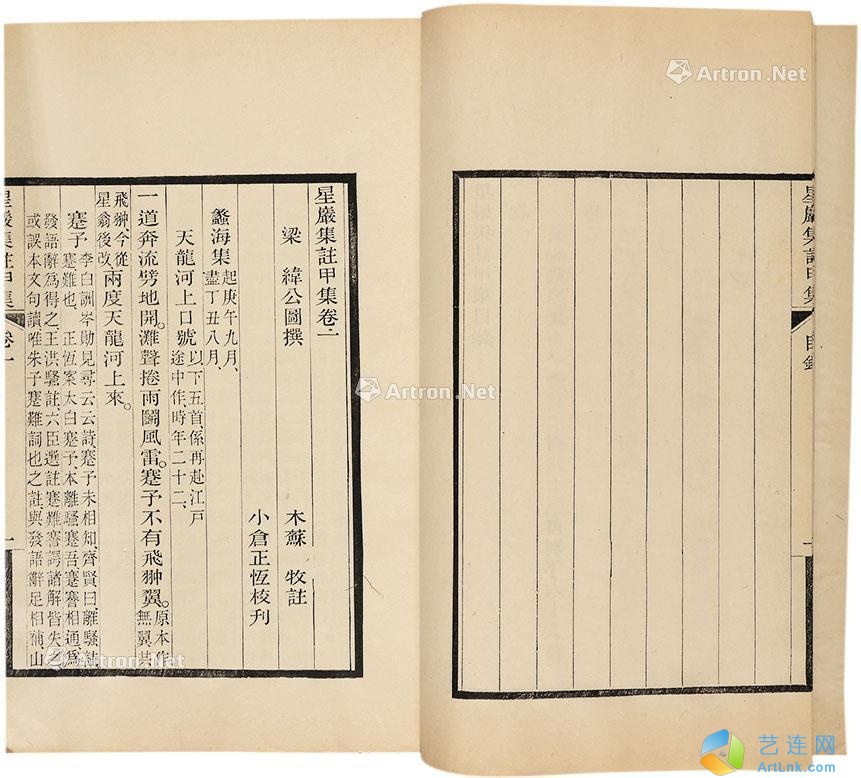 星巖集註甲集
目錄
一
星巖集註甲集卷一
梁 緯公圖撰
木蘇 牧註
小倉正恆校刊
蠡海集 起庚午九月、
盡丁丑八月、
天龍河上口號 以下五首、係再赴江戶
途中作、時年二十二、
一道奔流劈地開。灘聲捲雨鬭風雷。蹇予不有飛翀翼。 原本作
無翼其
飛翀、今從
星翁後改、 兩度天龍河上來。
蹇予 李白詶岑勛見尋云云詩、蹇予未相知、齊賢曰、離騷註
蹇、難也、 正恆案太白蹇予本離騷蹇吾、蹇謇相通、爲
發語辭爲得之、王洪騷註、六臣選註、蹇難謇諤諸解皆失
或誤本文句讀、唯朱子蹇難詞也之註、與發語辭足相補、山
星巖集註甲集
卷一
一
Artron.Net
Artron.Net
Artron.Net
艺连网
ArtLnk.com